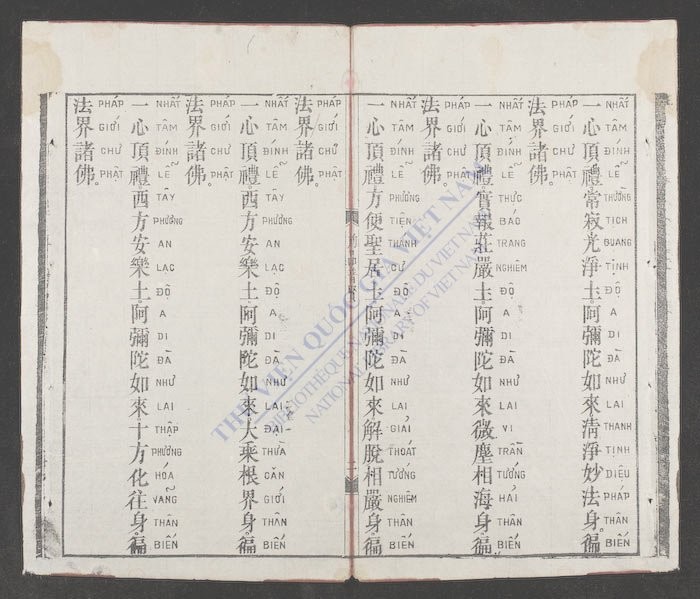 NHẤT TÂM ĐÍNH LỄ THƯỜNG TỊCH QUANG TỊNH ĐỘ A DI ĐÀ NHƯ LAI THANH TỊNH DIỆU PHÁP THÂN BIẾN
一心頂禮常寂光淨土阿彌陀如來清淨妙法身。徧
PHÁP GIỚI CHƯ PHẬT
法界諸佛。
NHẤT TÂM ĐÍNH LỄ THỰC BÁO TRANG NGHIÊM ĐỘ A DI ĐÀ NHƯ LAI VI TRẦN TƯỚNG HẢI THÂN BIẾN
一心頂禮實報莊嚴土阿彌陀如來微塵相海身。徧
PHÁP GIỚI CHƯ PHẬT
法界諸佛。
NHẤT TÂM ĐÍNH LỄ PHƯƠNG TIỆN THÁNH CƯ ĐỘ A DI ĐÀ NHƯ LAI GIẢI THOÁT TƯỚNG NGHIÊM THÂN BIẾN
一心頂禮方便聖居土阿彌陀如來解脫相嚴身。徧
二
PHÁP GIỚI CHƯ PHẬT
法界諸佛。
NHẤT TÂM ĐÍNH LỄ TÂY PHƯƠNG AN LẠC ĐỘ A DI ĐÀ NHƯ LAI ĐẠI THỪA CĂN GIỚI THÂN BIẾN
一心頂禮。西方安樂土阿彌陀如來大乘根界身。徧
PHÁP GIỚI CHƯ PHẬT
法界諸佛。
NHẤT TÂM ĐÍNH LỄ TÂY PHƯƠNG AN LẠC ĐỘ A DI ĐÀ NHƯ LAI THẬP PHƯƠNG HÓA VÃNG THÂN BIẾN
一心頂禮西方安樂土阿彌陀如來十方化往身。徧
PHÁP GIỚI CHƯ PHẬT
法界諸佛。
THƯ VIỆN QUỐC GIA VIỆT NAM
BIBLIOTHÈQUE NATIONALE DU VIETNAM
NATIONAL LIBRARY OF VIETNAM